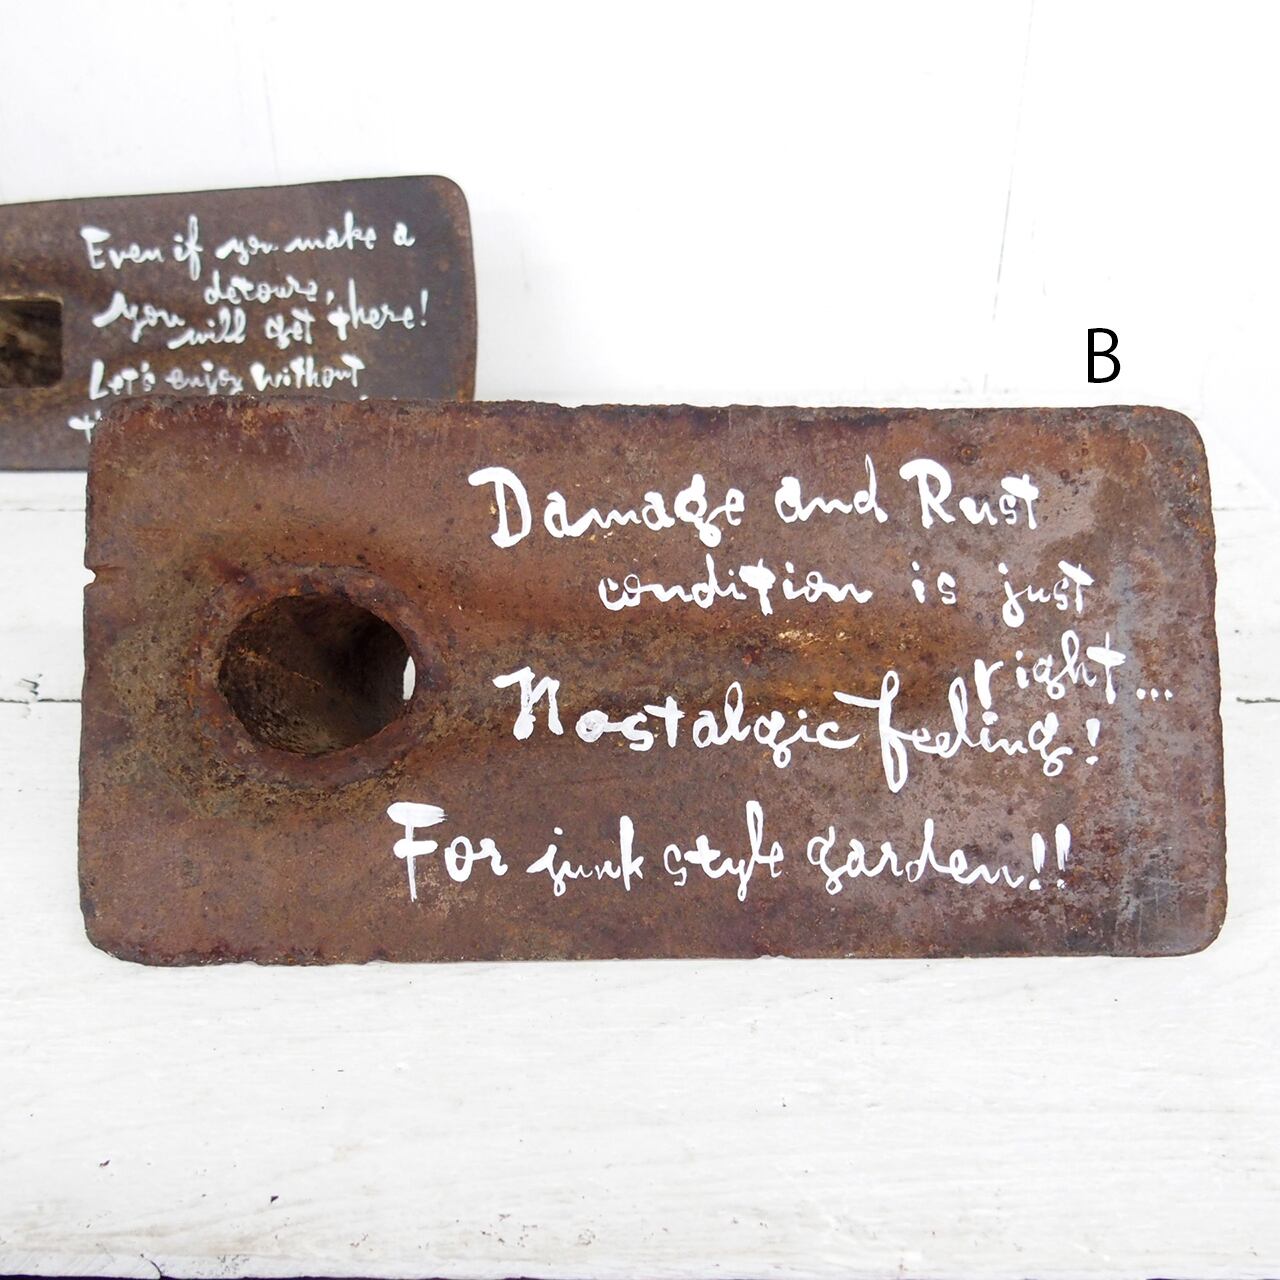 Even if you make a
detoure,
you will get there!
Let's enjoy without
B
Damage and Rust
condition is just
right...
Nostalgic feeling!
For junk style garden!!